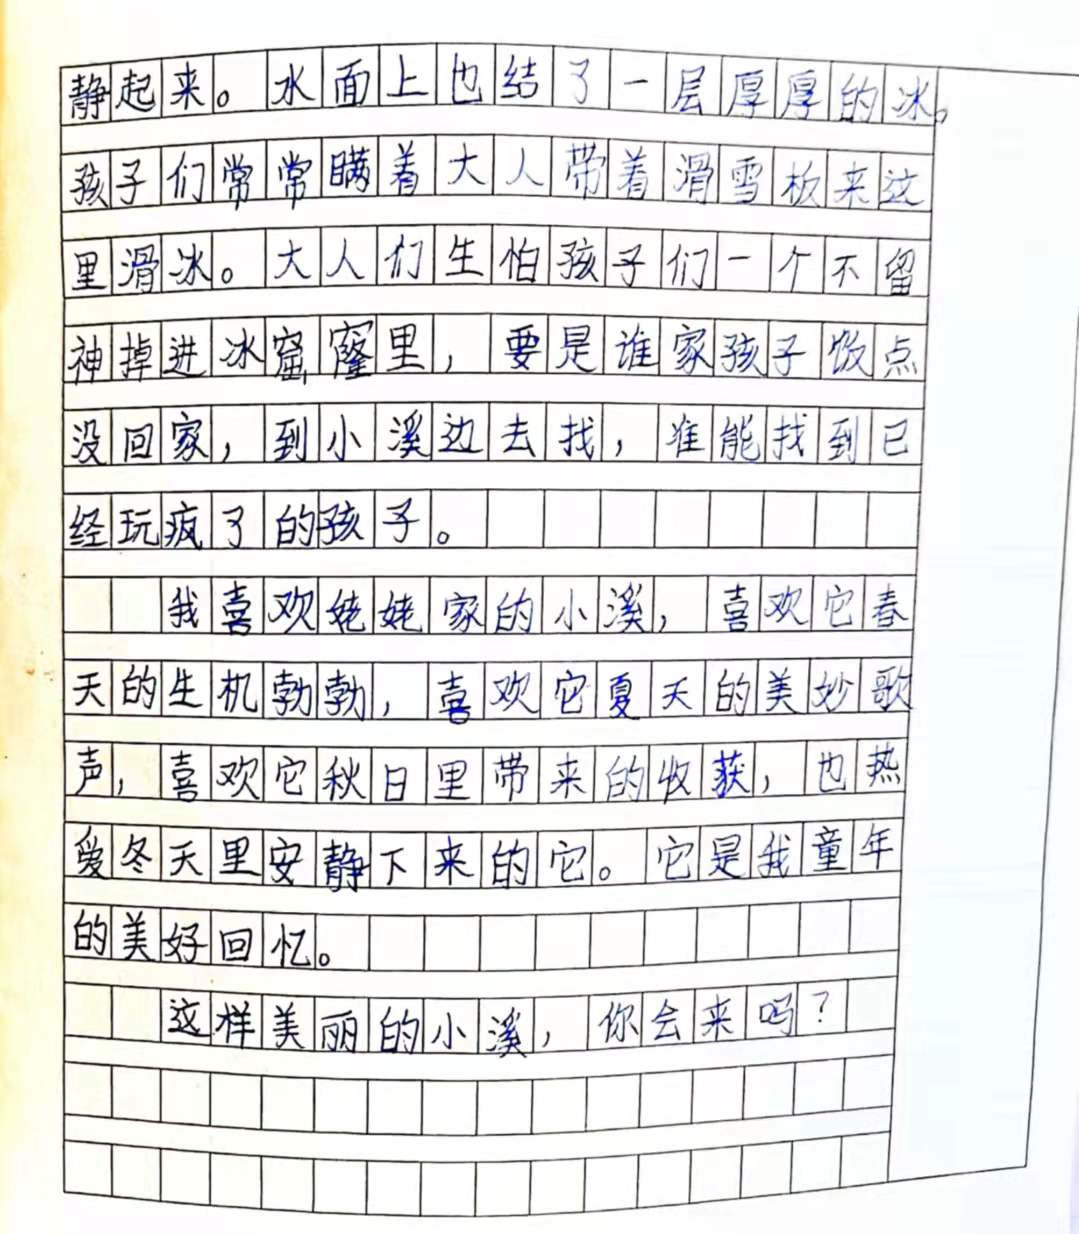 静起来。水面上也结了一层厚厚的冰。
孩子们常常瞒着大人带着滑雪板来这
里滑冰。大人们生怕孩子们一个不留
神掉进冰窟窿里，要是谁家孩子饭点
没回家，到小溪边去找，准能找到已
经玩疯了的孩子。
我喜欢姥姥家的小溪，喜欢它春
天的生机勃勃，喜欢它夏天的美妙歌
声，喜欢它秋日里带来的收获，也热
爱冬天里安静下来的它。它是我童年
的美好回忆。
这样美丽的小溪，你会来吗？